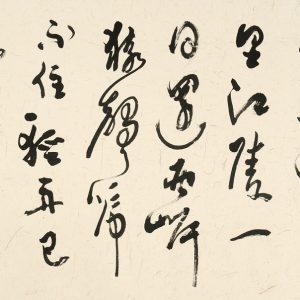 里江陵一
日還兩岸
猿聲啼
不住輕舟已